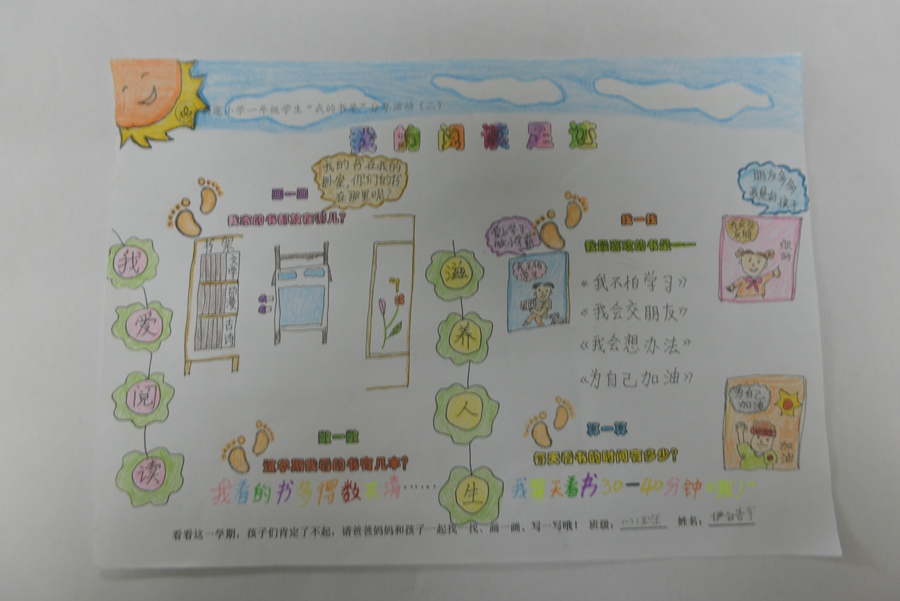 小学一年级学生“我的书架”分享活动（二）
我的阅读足迹
我的书在我的
卧室,你们的书
在哪里呢?
画一画
我家的书都放在哪儿?
书架
文学
古诗
我
爱
阅
读
朋友多多
找一找
我最喜欢的书是——
你好
《我不怕学习》
《我会交朋友》
《我会想办法》
《为自己加油》
滋
养
人
生
为自己
加油
加油
数一数
这学期我看的书有几本?
我看的书多得数不清……
算一算
每天看书的时间有多少?
我每天看书30—40分钟
看看这一学期，孩子们肯定了不起，请爸爸妈妈和孩子一起找一找、画一画、写一写哦！ 班级： 姓名：